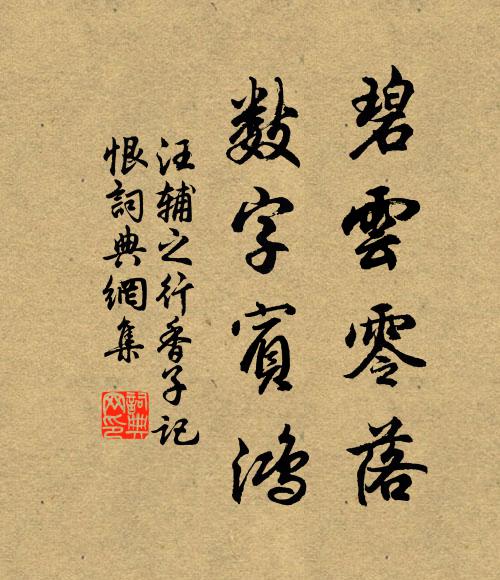 碧雲零落
數字賓鴻
汪輔之行香子記
恨詞典網集
詞典
网印